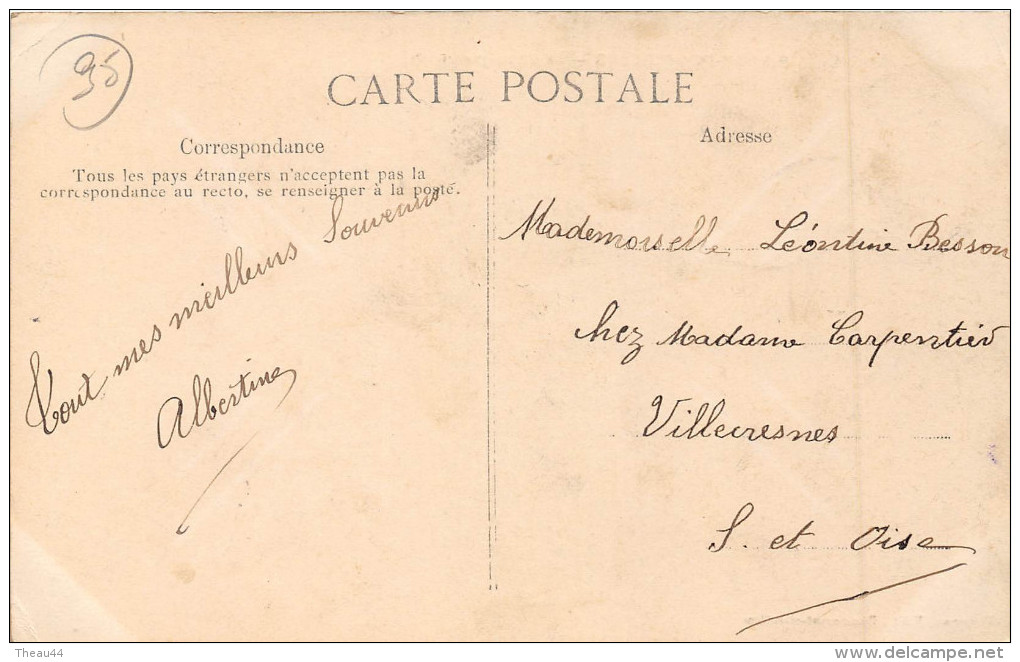 95
CARTE POSTALE
Correspondance
Tous les pays étrangers n'acceptent pas la
correspondance au recto, se renseigner à la poste.
Tout mes meilleurs Souvenirs
Albertine
Adresse
Mademoiselle Léontine Besson
chez Madame Carpentier
Villecresnes
S. et Oise
Theau44
delcampe.net